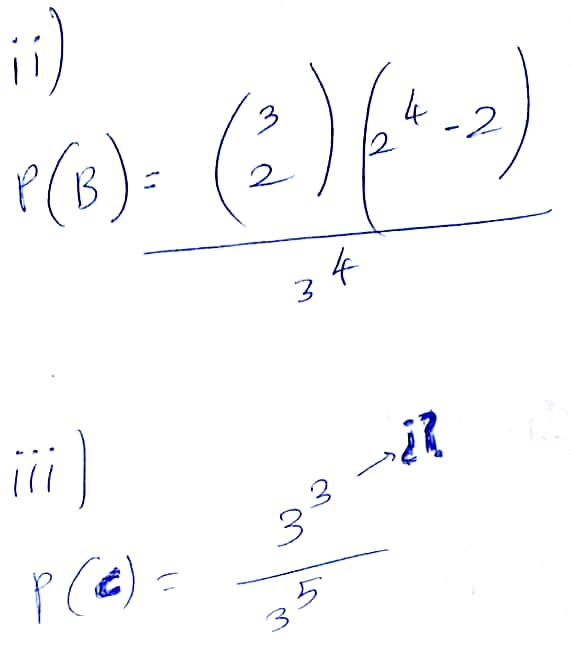 ii)
P(B) = (3 2) (2^4 - 2)
3^4
iii)
3^3 → i?
P(C) =
3^5